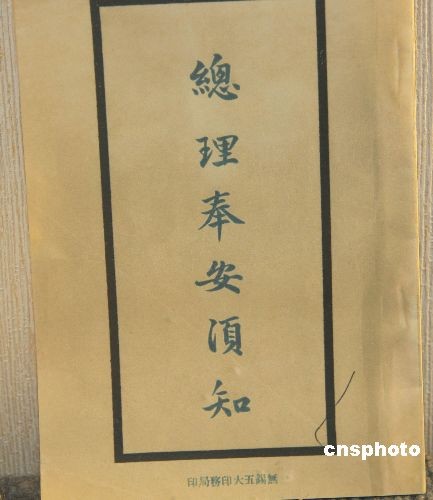 總理奉安須知
無錫五大印務局印
cnsphoto